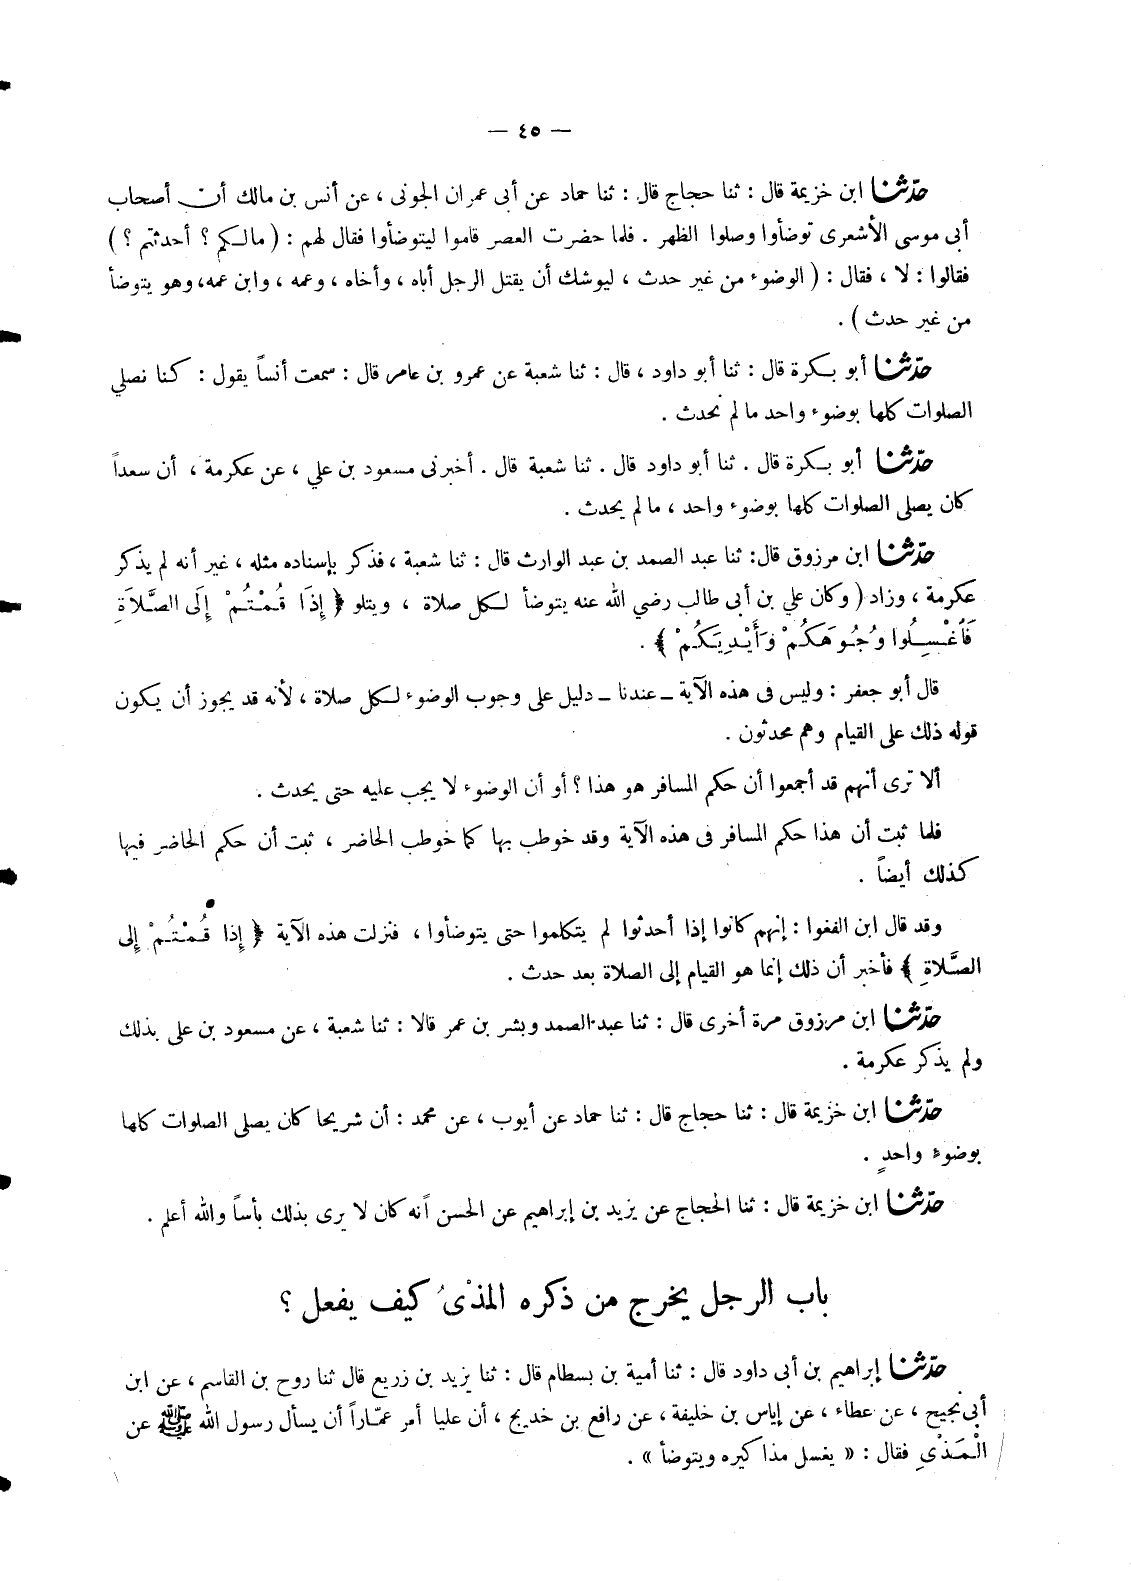 — ٤٥ —
حدّثنا ابن خزيمة قال : ثنا حجاج قال : ثنا حماد عن أبى عمران الجونى ، عن أنس بن مالك أن أصحاب
أبى موسى الأشعرى توضأوا وصلوا الظهر . فلما حضرت العصر قاموا ليتوضأوا فقال لهم : ( مالكم ؟ أحدثتم ؟ )
فقالوا : لا ، فقال : ( الوضوء من غير حدث ، ليوشك أن يقتل الرجل أباه ، وأخاه ، وعمه ، وابن عمه، وهو يتوضأ
من غير حدث ) .
حدّثنا أبو بكرة قال : ثنا أبو داود ، قال : ثنا شعبة عن عمرو بن عامر قال : سمعت أنساً يقول : كنا نصلي
الصلوات كلها بوضوء واحد ما لم نحدث .
حدّثنا أبو بكرة قال . ثنا أبو داود قال . ثنا شعبة قال . أخبرنى مسعود بن علي ، عن عكرمة ، أن سعداً
كان يصلى الصلوات كلها بوضوء واحد ، ما لم يحدث .
حدّثنا ابن مرزوق قال: ثنا عبد الصمد بن عبد الوارث قال : ثنا شعبة ، فذكر بإسناده مثله ، غير أنه لم يذكر
عكرمة ، وزاد ( وكان علي بن أبى طالب رضي الله عنه يتوضأ لكل صلاة ، ويتلو ﴿ إِذَا قُمْتُمْ إِلَى الصَّلاَةِ
فَاُغْسِلُوا وُجُوهَكُمْ وَأَيْدِيَكُمْ ﴾ .
قال أبو جعفر : وليس فى هذه الآية ـ عندنا ـ دليل على وجوب الوضوء لكل صلاة ، لأنه قد يجوز أن يكون
قوله ذلك على القيام وهم محدثون .
ألا ترى أنهم قد أجمعوا أن حكم المسافر هو هذا ؟ أو أن الوضوء لا يجب عليه حتى يحدث .
فلما ثبت أن هذا حكم المسافر فى هذه الآية وقد خوطب بها كما خوطب الحاضر ، ثبت أن حكم الحاضر فيها
كذلك أيضاً .
وقد قال ابن الفغوا : إنهم كانوا إذا أحدثوا لم يتكلموا حتى يتوضأوا ، فنزلت هذه الآية ﴿ إِذا قُمْتُمْ إِلى
الصَّلاةِ ﴾ فأخبر أن ذلك إنما هو القيام إلى الصلاة بعد حدث .
حدّثنا ابن مرزوق مرة أخرى قال : ثنا عبد الصمد وبشر بن عمر قالا : ثنا شعبة ، عن مسعود بن على بذلك
ولم يذكر عكرمة .
حدّثنا ابن خزيمة قال : ثنا حجاج قال : ثنا حماد عن أيوب ، عن محمد : أن شريحا كان يصلى الصلوات كلها
بوضوء واحدٍ .
حدّثنا ابن خزيمة قال : ثنا الحجاج عن يزيد بن إبراهيم عن الحسن أنه كان لا يرى بذلك بأساً والله أعلم .
باب الرجل يخرج من ذكره المذْىُ كيف يفعل ؟
حدّثنا إبراهيم بن أبى داود قال : ثنا أمية بن بسطام قال : ثنا يزيد بن زريع قال ثنا روح بن القاسم ، عن ابن
أبى نجيح ، عن عطاء ، عن إياس بن خليفة ، عن رافع بن خديج ، أن عليا أمر عمّاراً أن يسأل رسول الله ﷺ عن
الْمَذْىِ فقال : « يغسل مذاكيره ويتوضأ » .